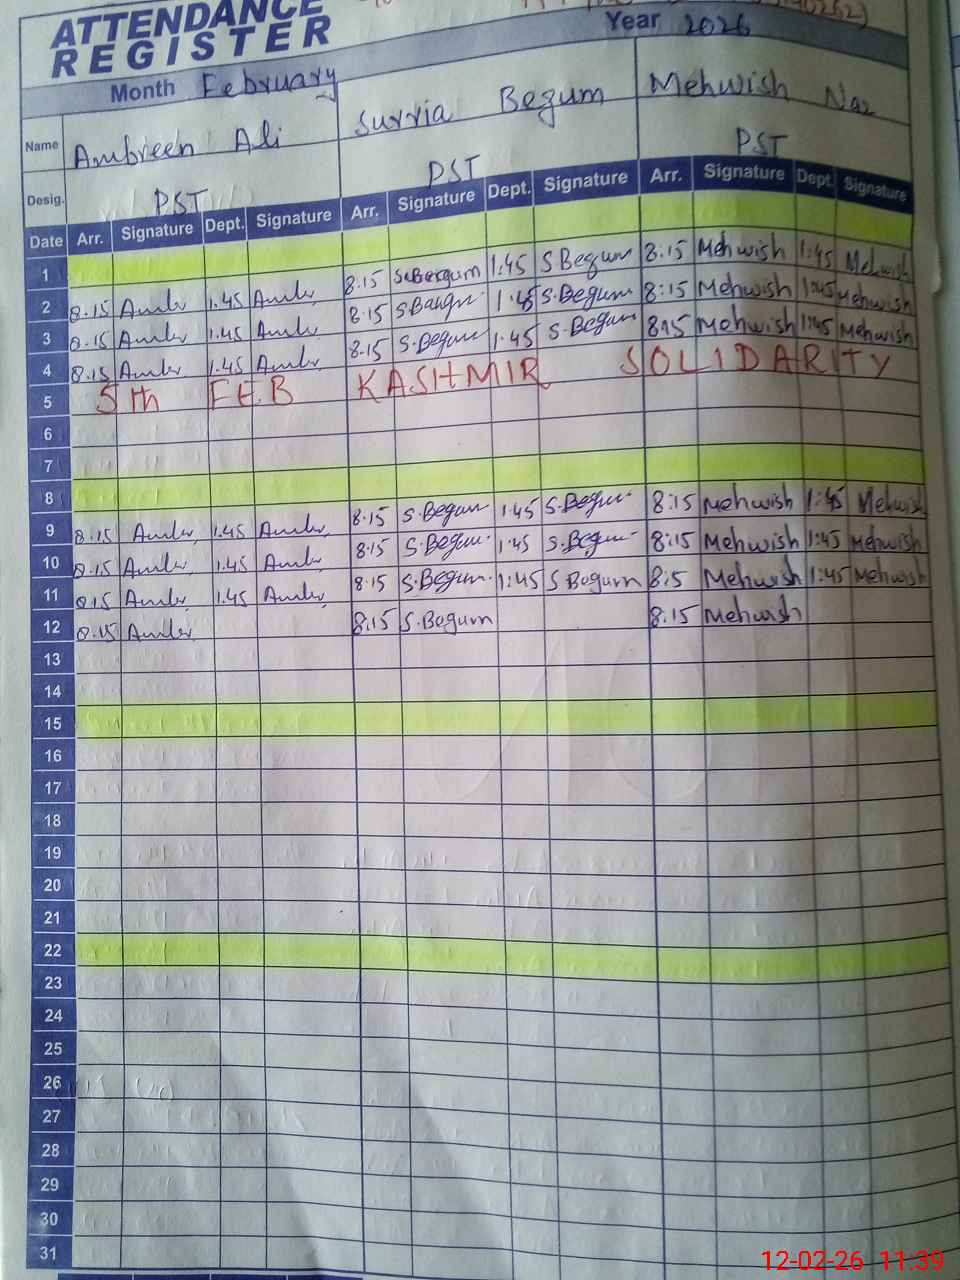 ATTENDANCE
REGISTER
Year 2026
Month February
Name Ambreen Ali Surria Begum Mehwish Naz
Desig. PST PST PST
Date Arr. Signature Dept. Signature Arr. Signature Dept. Signature Arr. Signature Dept. Signature
1
2 8.15 Amber 1.45 Amber 8:15 S.Begum 1:45 S Begum 8:15 Mehwish 1:45 Mehwish
3 8.15 Amber 1.45 Amber 8:15 1:45 S.Begum 8:15 Mehwish 1:45 Mehwish
4 8.15 Amber 1.45 Amber 8:15 S.Begum 1:45 S.Begum 8:15 Mehwish 1:45 Mehwish
5 5th FEB KASHMIR SOLIDARITY
6
7
8
9 8.15 Amber 1.45 Amber 8:15 S.Begum 1:45 S.Begum 8:15 Mehwish 1:45 Mehwish
10 8.15 Amber 1.45 Amber 8:15 S.Begum 1:45 S.Begum 8:15 Mehwish 1:45 Mehwish
11 8.15 Amber 1.45 Amber 8:15 S.Begum 1:45 S Begum 8:5 Mehwish 1:45 Mehwish
12 8.15 Amber 8:15 S.Begum 8:15 Mehwish
13
14
15
16
17
18
19
20
21
22
23
24
25
26
27
28
29
30
31
12-02-26 11:39